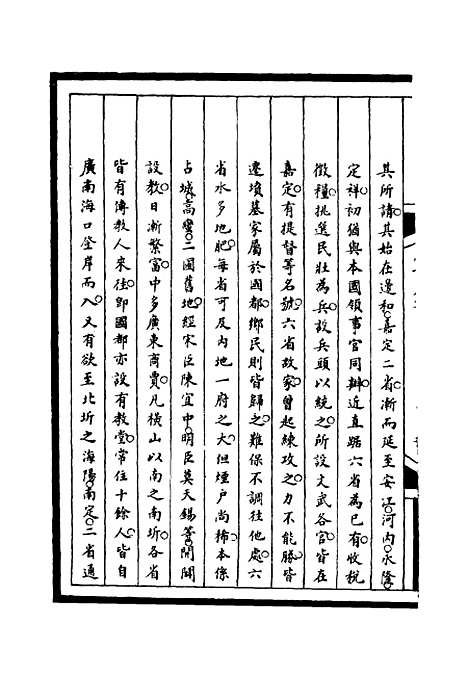 其所請其始在邊和嘉定二省漸而延至安江河內永隆
定祥初猶與本國領事官同辦近直踞六省為已有收稅
徵糧挑選民壯為兵設兵頭以統之所設文武各官皆在
嘉定有提督等名號六省故家曾起練攻之力不能勝皆
遷墳墓家屬於國都鄉民則皆歸之難保不調往他處六
省水多地肥每省可及內地一府之大但煙戶尚稀本係
占城高蠻二國舊地經宋臣陳宜中明臣莫天錫等開闢
設教日漸繁富中多廣東商賈凡橫山以南之南圻各省
皆有傳教人來往即國都亦設有教堂常住十餘人皆自
廣南海口登岸而入又有欲至北圻之海陽南定二省通